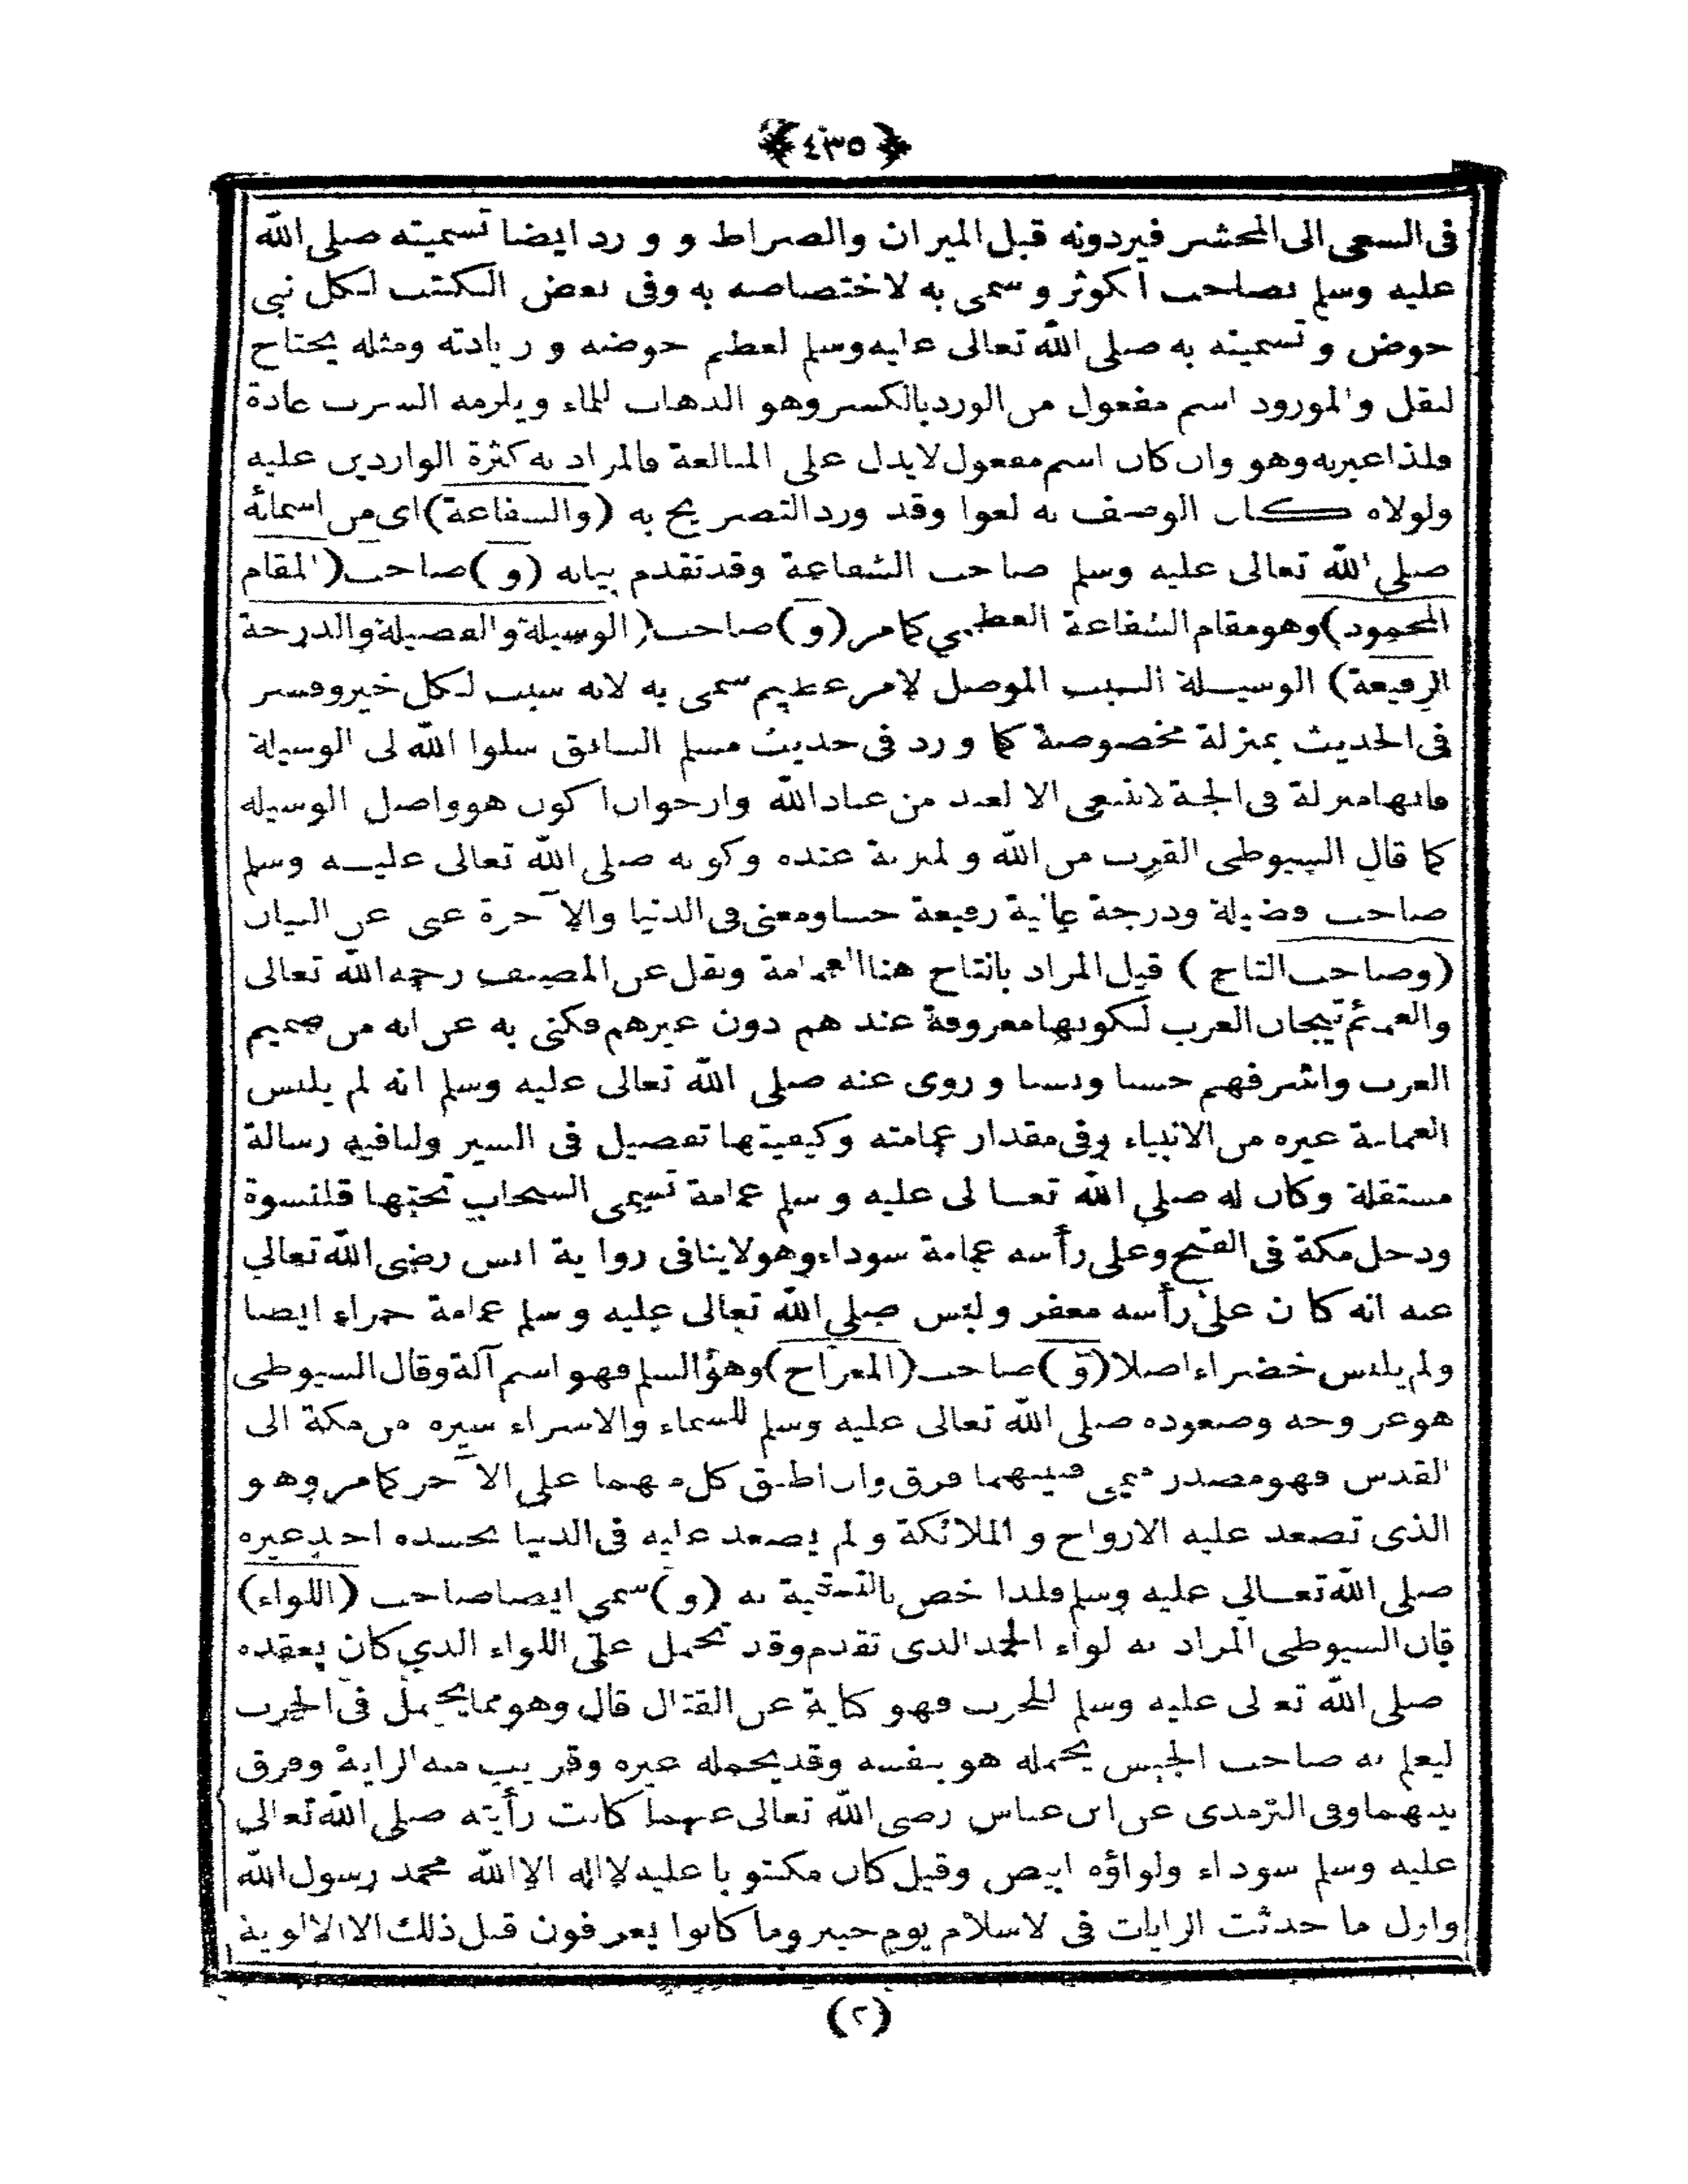 ﴿٤٣٥﴾
فى السعى الى المحشر فيردونه قبل الميزان والصراط و ورد ايضا تسميته صلى الله
عليه وسلم بصاحب الكوثر وسمى به لاختصاصه به وفى بعض الكتب لكل نبى
حوض وتسميته به صلى الله تعالى عليه وسلم لعظم حوضه و زيادته ومثله يحتاج
لنقل والمورود اسم مفعول من الورد بالكسر وهو الذهاب للماء ويلزمه الشرب عادة
فلذا عبر به وهو وان كان اسم مفعول لا يدل على المبالغة فالمراد به كثرة الواردين عليه
ولولاه كان الوصف به لغوا وقد ورد التصريح به (والشفاعة) اى من اسمائه
صلى الله تعالى عليه وسلم صاحب الشفاعة وقد تقدم بيانه (و) صاحب (المقام
المحمود) وهو مقام الشفاعة العظمى كما مر (و) صاحب (الوسيلة والفضيلة والدرجة
الرفيعة) الوسيلة السبب الموصل لامر عظيم سمى به لانه سبب لكل خير وفسر
فى الحديث بمنزلة مخصوصة كما ورد فى حديث مسلم السابق سلوا الله لى الوسيلة
فانها منزلة فى الجنة لا تنبغى الا لعبد من عباد الله وارجو ان اكون هو واصل الوسيلة
كما قال السيوطى القرب من الله والمنزلة عنده وكونه صلى الله تعالى عليه وسلم
صاحب فضيلة ودرجة عالية رفيعة حسا ومعنى فى الدنيا والآخرة غنى عن البيان
(وصاحب التاج) قيل المراد بالتاج هنا العمامة ونقل عن المصنف رحمه الله تعالى
والعمائم تيجان العرب لكونها معروفة عندهم دون غيرهم فكنى به عن انه من صميم
العرب واشرفهم حسبا ونسبا وروى عنه صلى الله تعالى عليه وسلم انه لم يلبس
العمامة غيره من الانبياء وفى مقدار عمامته وكيفيتها تفصيل فى السير ولنا فيه رسالة
مستقلة وكان له صلى الله تعالى عليه وسلم عمامة تسمى السحاب تحتها قلنسوة
ودخل مكة فى الفتح وعلى رأسه عمامة سوداء وهو لا ينافى رواية انس رضى الله تعالى
عنه انه كان على رأسه مغفر ولبس صلى الله تعالى عليه وسلم عمامة حمراء ايضا
ولم يلبس خضراء اصلا (و) صاحب (المعراج) وهو السلم فهو اسم آلة وقال السيوطى
هو عروجه وصعوده صلى الله تعالى عليه وسلم للسماء والاسراء سيره من مكة الى
القدس فهو مصدر ميمى فبينهما فرق وان اطلق كل منهما على الآخر كما مر وهو
الذى تصعد عليه الارواح والملائكة ولم يصعد عليه فى الدنيا بجسده احد غيره
صلى الله تعالى عليه وسلم فلذا خص بالتسمية به (و) سمى ايضا صاحب (اللواء)
قال السيوطى المراد به لواء الحمد الذى تقدم وقد تحمل على اللواء الذي كان يعقده
صلى الله تعالى عليه وسلم للحرب فهو كناية عن القتال قال وهو مما يحمل فى الحرب
ليعلم به صاحب الجيش يحمله هو بنفسه وقد يحمله غيره وقريب منه الراية وفرق
بينهما وفى الترمذى عن ابن عباس رضى الله تعالى عنهما كانت رأيته صلى الله تعالى
عليه وسلم سوداء ولواؤه ابيض وقيل كان مكتوبا عليه لا اله الا الله محمد رسول الله
واول ما حدثت الرايات فى الاسلام يوم خيبر وما كانوا يعرفون قبل ذلك الا الالوية
(٢)